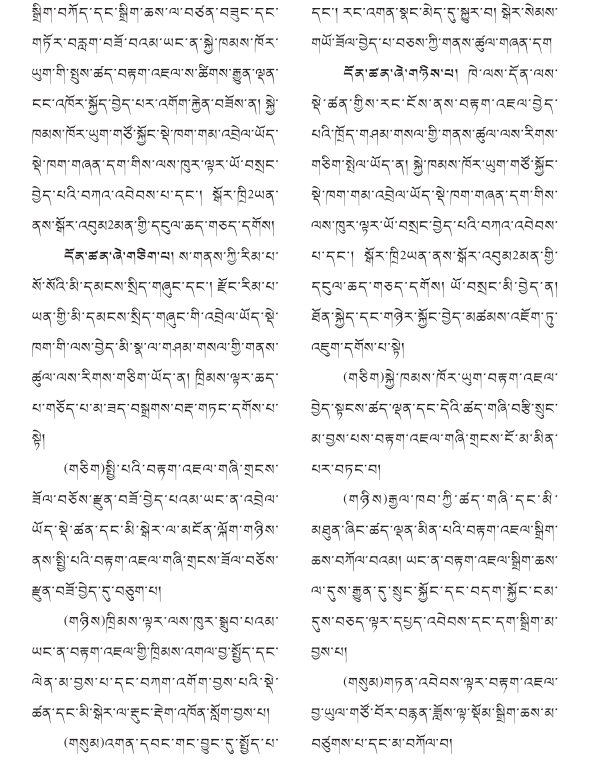 སྒྲིག་བཀོད་དང་སྒྲིག་ཆས་ལ་བཙན་བཟུང་དང་
གཏོར་བརླག་བཟོ་བའམ་ཡང་ན་སྐྱེ་ཁམས་ཁོར་
ཡུག་གི་སྤུས་ཚད་བརྟག་འཇལ་ས་ཚིགས་རྒྱུན་ལྡན་
ངང་འཁོར་སྐྱོད་བྱེད་པར་འགོག་རྐྱེན་བཟོས་ན། སྐྱེ་
ཁམས་ཁོར་ཡུག་གཙོ་སྐྱོང་སྡེ་ཁག་གམ་འབྲེལ་ཡོད་
སྡེ་ཁག་གཞན་དག་གིས་ལས་ཁུར་ལྟར་ཡོ་བསྲང་
བྱེད་པའི་བཀའ་འབེབས་པ་དང་། སྒོར་ཁྲི2ཡན་
ནས་སྒོར་འབུམ2མན་གྱི་དངུལ་ཆད་གཅད་དགོས།
དོན་ཚན་ཞེ་གཅིག་པ། ས་གནས་ཀྱི་རིམ་པ་
སོ་སོའི་མི་དམངས་སྲིད་གཞུང་དང་། རྫོང་རིམ་པ་
ཡན་གྱི་མི་དམངས་སྲིད་གཞུང་གི་འབྲེལ་ཡོད་སྡེ་
ཁག་གི་ལས་བྱེད་མི་སྣ་ལ་གཤམ་གསལ་གྱི་གནས་
ཚུལ་ལས་རིགས་གཅིག་ཡོད་ན། ཁྲིམས་ལྟར་ཆད་
པ་གཅོད་པ་མ་ཟད་བསྒྲགས་བརྡ་གཏང་དགོས་པ་
སྟེ།
(གཅིག)སྤྱི་པའི་བརྟག་འཇལ་གཞི་གྲངས་
ཟོལ་བཅོས་རྫུན་བཟོ་བྱེད་པའམ་ཡང་ན་འབྲེལ་
ཡོད་སྡེ་ཚན་དང་མི་སྒེར་ལ་མངོན་ལྐོག་གཉིས་
ནས་སྤྱི་པའི་བརྟག་འཇལ་གཞི་གྲངས་ཟོལ་བཅོས་
རྫུན་བཟོ་བྱེད་དུ་བཅུག་པ།
(གཉིས)ཁྲིམས་ལྟར་ལས་ཁུར་སྒྲུབ་པའམ་
ཡང་ན་བརྟག་འཇལ་གྱི་ཁྲིམས་འགལ་བྱ་སྤྱོད་དང་
ལེན་མ་བྱས་པ་དང་བཀག་འགོག་བྱས་པའི་སྡེ་
ཚན་དང་མི་སྒེར་ལ་རྡུང་རྡེག་འཁོན་སློག་བྱས་པ།
(གསུམ)འགན་དབང་གང་བྱུང་དུ་སྤྱོད་པ་
དང་། རང་འགན་སྣང་མེད་དུ་སྐྱུར་བ། སྒེར་སེམས་
གཡོ་ཟོལ་བྱེད་པ་བཅས་ཀྱི་གནས་ཚུལ་གཞན་དག
དོན་ཚན་ཞེ་གཉིས་པ། ཁེ་ལས་དོན་ལས་
སྡེ་ཚན་གྱིས་རང་ངོས་ནས་བརྟག་འཇལ་བྱེད་
པའི་ཁྲོད་གཤམ་གསལ་གྱི་གནས་ཚུལ་ལས་རིགས་
གཅིག་སྤེལ་ཡོད་ན། སྐྱེ་ཁམས་ཁོར་ཡུག་གཙོ་སྐྱོང་
སྡེ་ཁག་གམ་འབྲེལ་ཡོད་སྡེ་ཁག་གཞན་དག་གིས་
ལས་ཁུར་ལྟར་ཡོ་བསྲང་བྱེད་པའི་བཀའ་འབེབས་
པ་དང་། སྒོར་ཁྲི2ཡན་ནས་སྒོར་འབུམ2མན་གྱི་
དངུལ་ཆད་གཅད་དགོས། ཡོ་བསྲང་མི་བྱེད་ན།
ཐོན་སྐྱེད་དང་གཉེར་སྐྱོང་བྱེད་མཚམས་འཇོག་ཏུ་
འཇུག་དགོས་པ་སྟེ།
(གཅིག)སྐྱེ་ཁམས་ཁོར་ཡུག་བརྟག་འཇལ་
བྱེད་སྟངས་ཚད་ལྡན་དང་དེའི་ཚད་གཞི་བརྩི་སྲུང་
མ་བྱས་པས་བརྟག་འཇལ་གཞི་གྲངས་ངོ་མ་མིན་
པར་བཏང་བ།
(གཉིས)རྒྱལ་ཁབ་ཀྱི་ཚད་གཞི་དང་མི་
མཐུན་ཞིང་ཚད་ལྡན་མིན་པའི་བརྟག་འཇལ་སྒྲིག་
ཆས་བཀོལ་བའམ། ཡང་ན་བརྟག་འཇལ་སྒྲིག་ཆས་
ལ་དུས་རྒྱུན་དུ་སྲུང་སྐྱོང་དང་བདག་སྐྱོང་ངམ་
དུས་བཅད་ལྟར་དཔྱད་འབེབས་དང་དག་སྒྲིག་མ་
བྱས་པ།
(གསུམ)གཏན་འབེབས་ལྟར་བརྟག་འཇལ་
བྱ་ཡུལ་གཙོ་བོར་བརྙན་ཟློས་ལྟ་སྡོམ་སྒྲིག་ཆས་མ་
བཙུགས་པ་དང་མ་བཀོལ་བ།